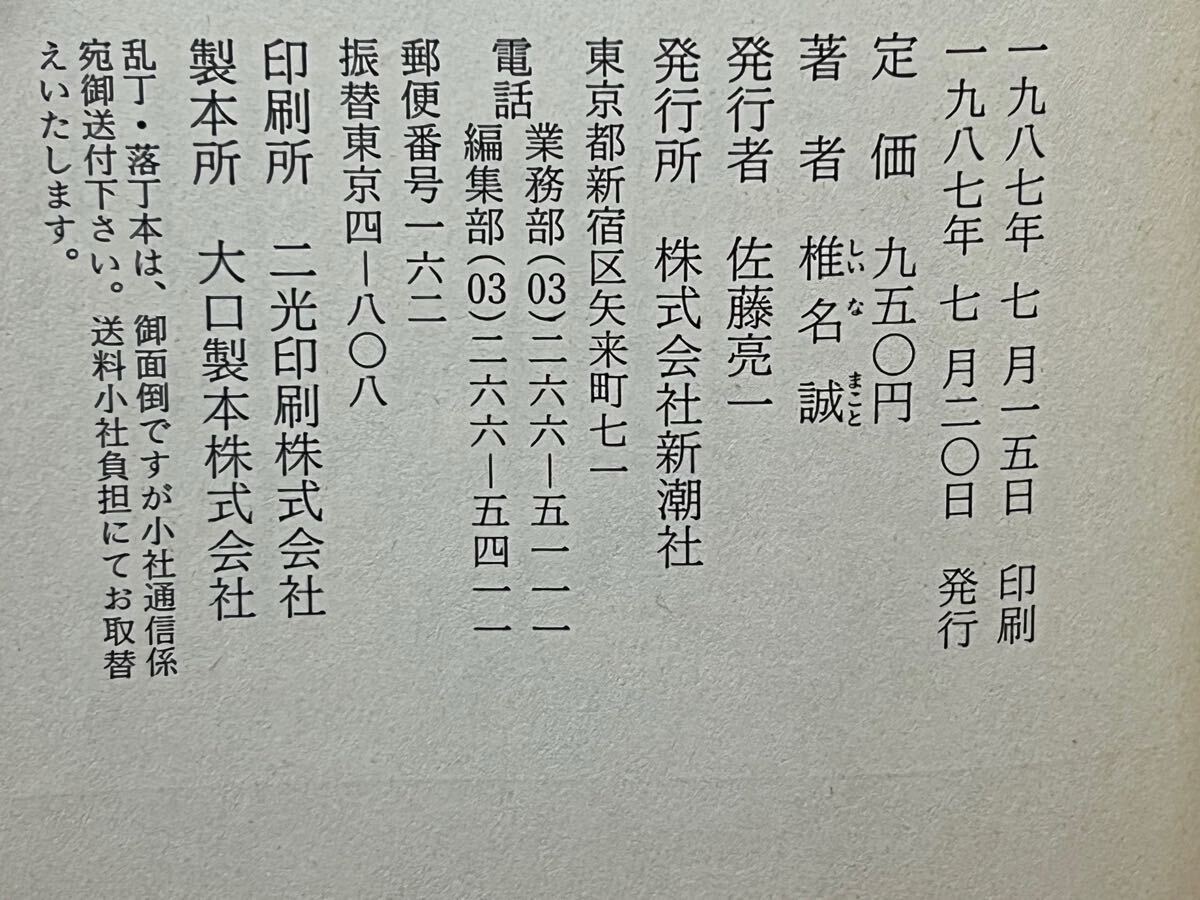 一九八七年 七月一五日 印刷
一九八七年 七月二〇日 発行
定価 九五〇円
著者 椎名誠
しいなまこと
発行者 佐藤亮一
発行所 株式会社新潮社
東京都新宿区矢来町七一
電話
業務部(03)二六六―五一一一
編集部(03)二六六―五四一一
郵便番号一六二
振替東京四―八〇八
印刷所 二光印刷株式会社
製本所 大口製本株式会社
乱丁・落丁本は、御面倒ですが小社通信係
宛御送付下さい。送料小社負担にてお取替
えいたします。